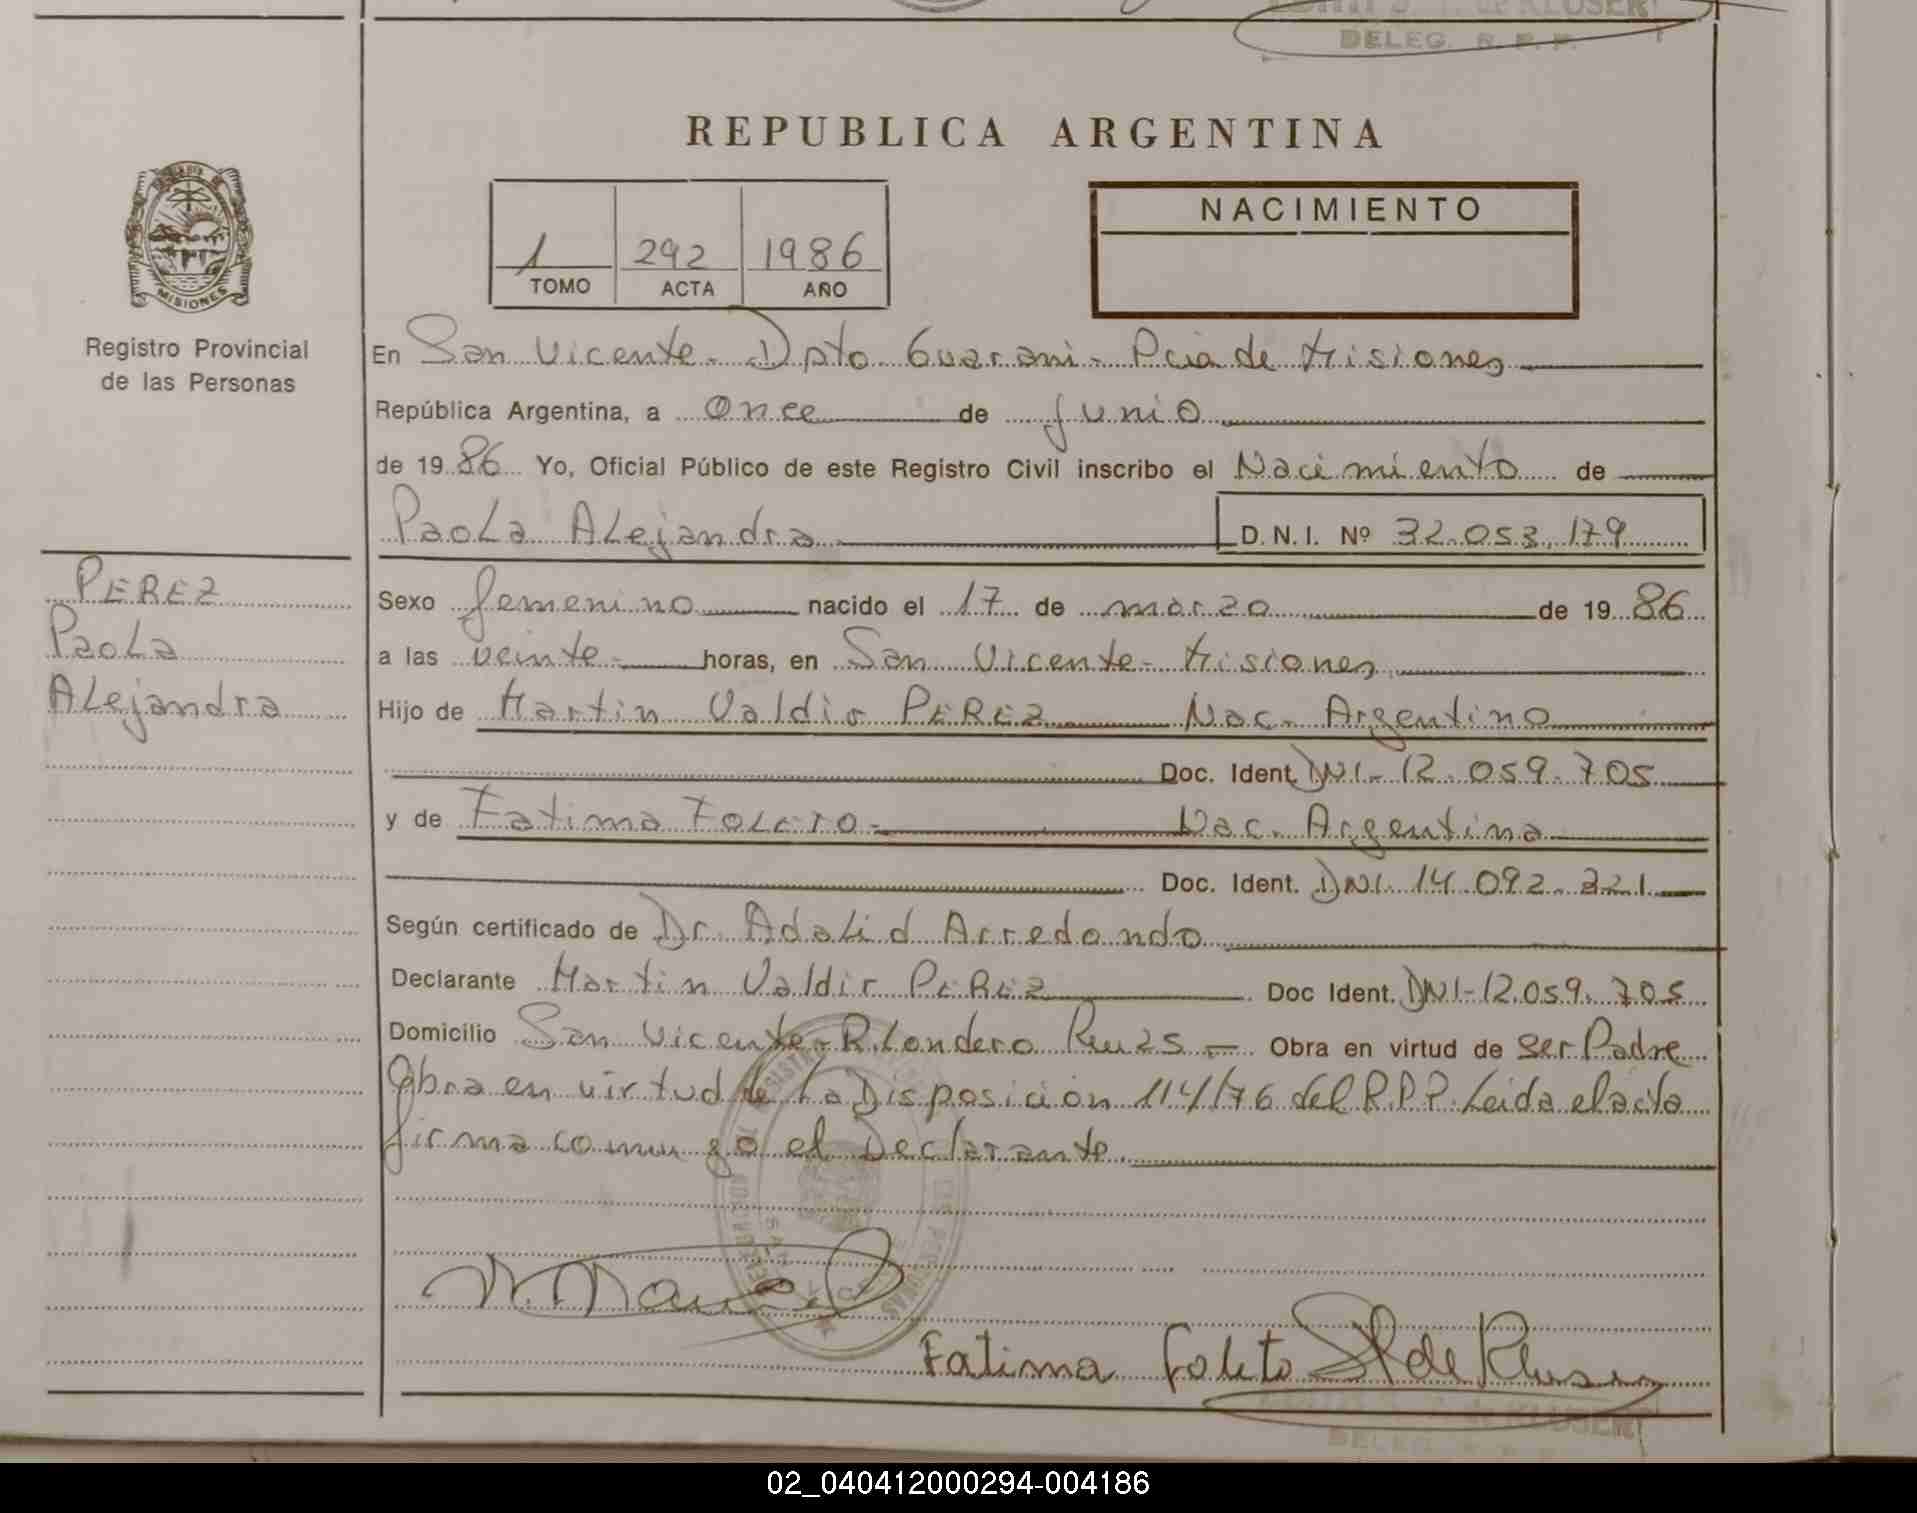 DELEG. R. P. P.
REPUBLICA ARGENTINA
NACIMIENTO
1 292 1986
TOMO ACTA AÑO
MISIONES
Registro Provincial
de las Personas
En San Vicente - Dpto Guarani - Pcia de Misiones
República Argentina, a once de junio
de 19 86 Yo, Oficial Público de este Registro Civil inscribo el Nacimiento de
Paola Alejandra D. N. I. Nº 32.053.179
PEREZ
Paola
Alejandra
Sexo femenino nacido el 17 de marzo de 19 86
a las veinte horas, en San Vicente - Misiones
Hijo de Martin Valdir PEREZ Nac. Argentino
Doc. Ident. DNI-12.059.705
y de Fatima FOLETO Nac. Argentina
Doc. Ident. DNI 14.092.221
Según certificado de Dr. Adalid Arredondo
Declarante Martin Valdir PEREZ Doc Ident. DNI-12.059.705
Domicilio San Vicente - R. Londero Obra en virtud de ser Padre
Obra en virtud de La Disposición 114/76 del R.P.P. Leida el acta
firma conmigo el Declarante
Fatima Foleto
de KLUSER
DELEG. R. P. P.
02_040412000294-004186